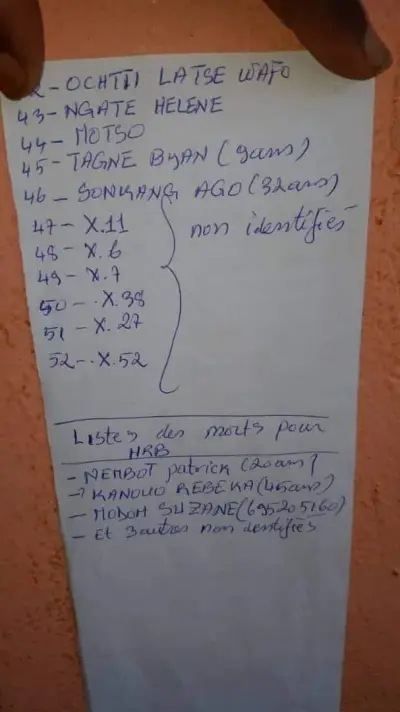 - OCHTII LATSE WAFO
43 - NGATE HELENE
44 - MOTSO
45 - TAGNE BYAN (9ans)
46 - SONKANG AGO (32ans)
47 - X.11
non identifiés
48 - X.6
49 - X.7
50 - X.38
51 - X.27
52 - X.52
Listes des morts pour
HRB
- NEMBOT Patrick (20ans)
- KANOUO REBEKA (45ans)
- MODOH SUZANE (695205160)
- Et 3 autres non identifiés